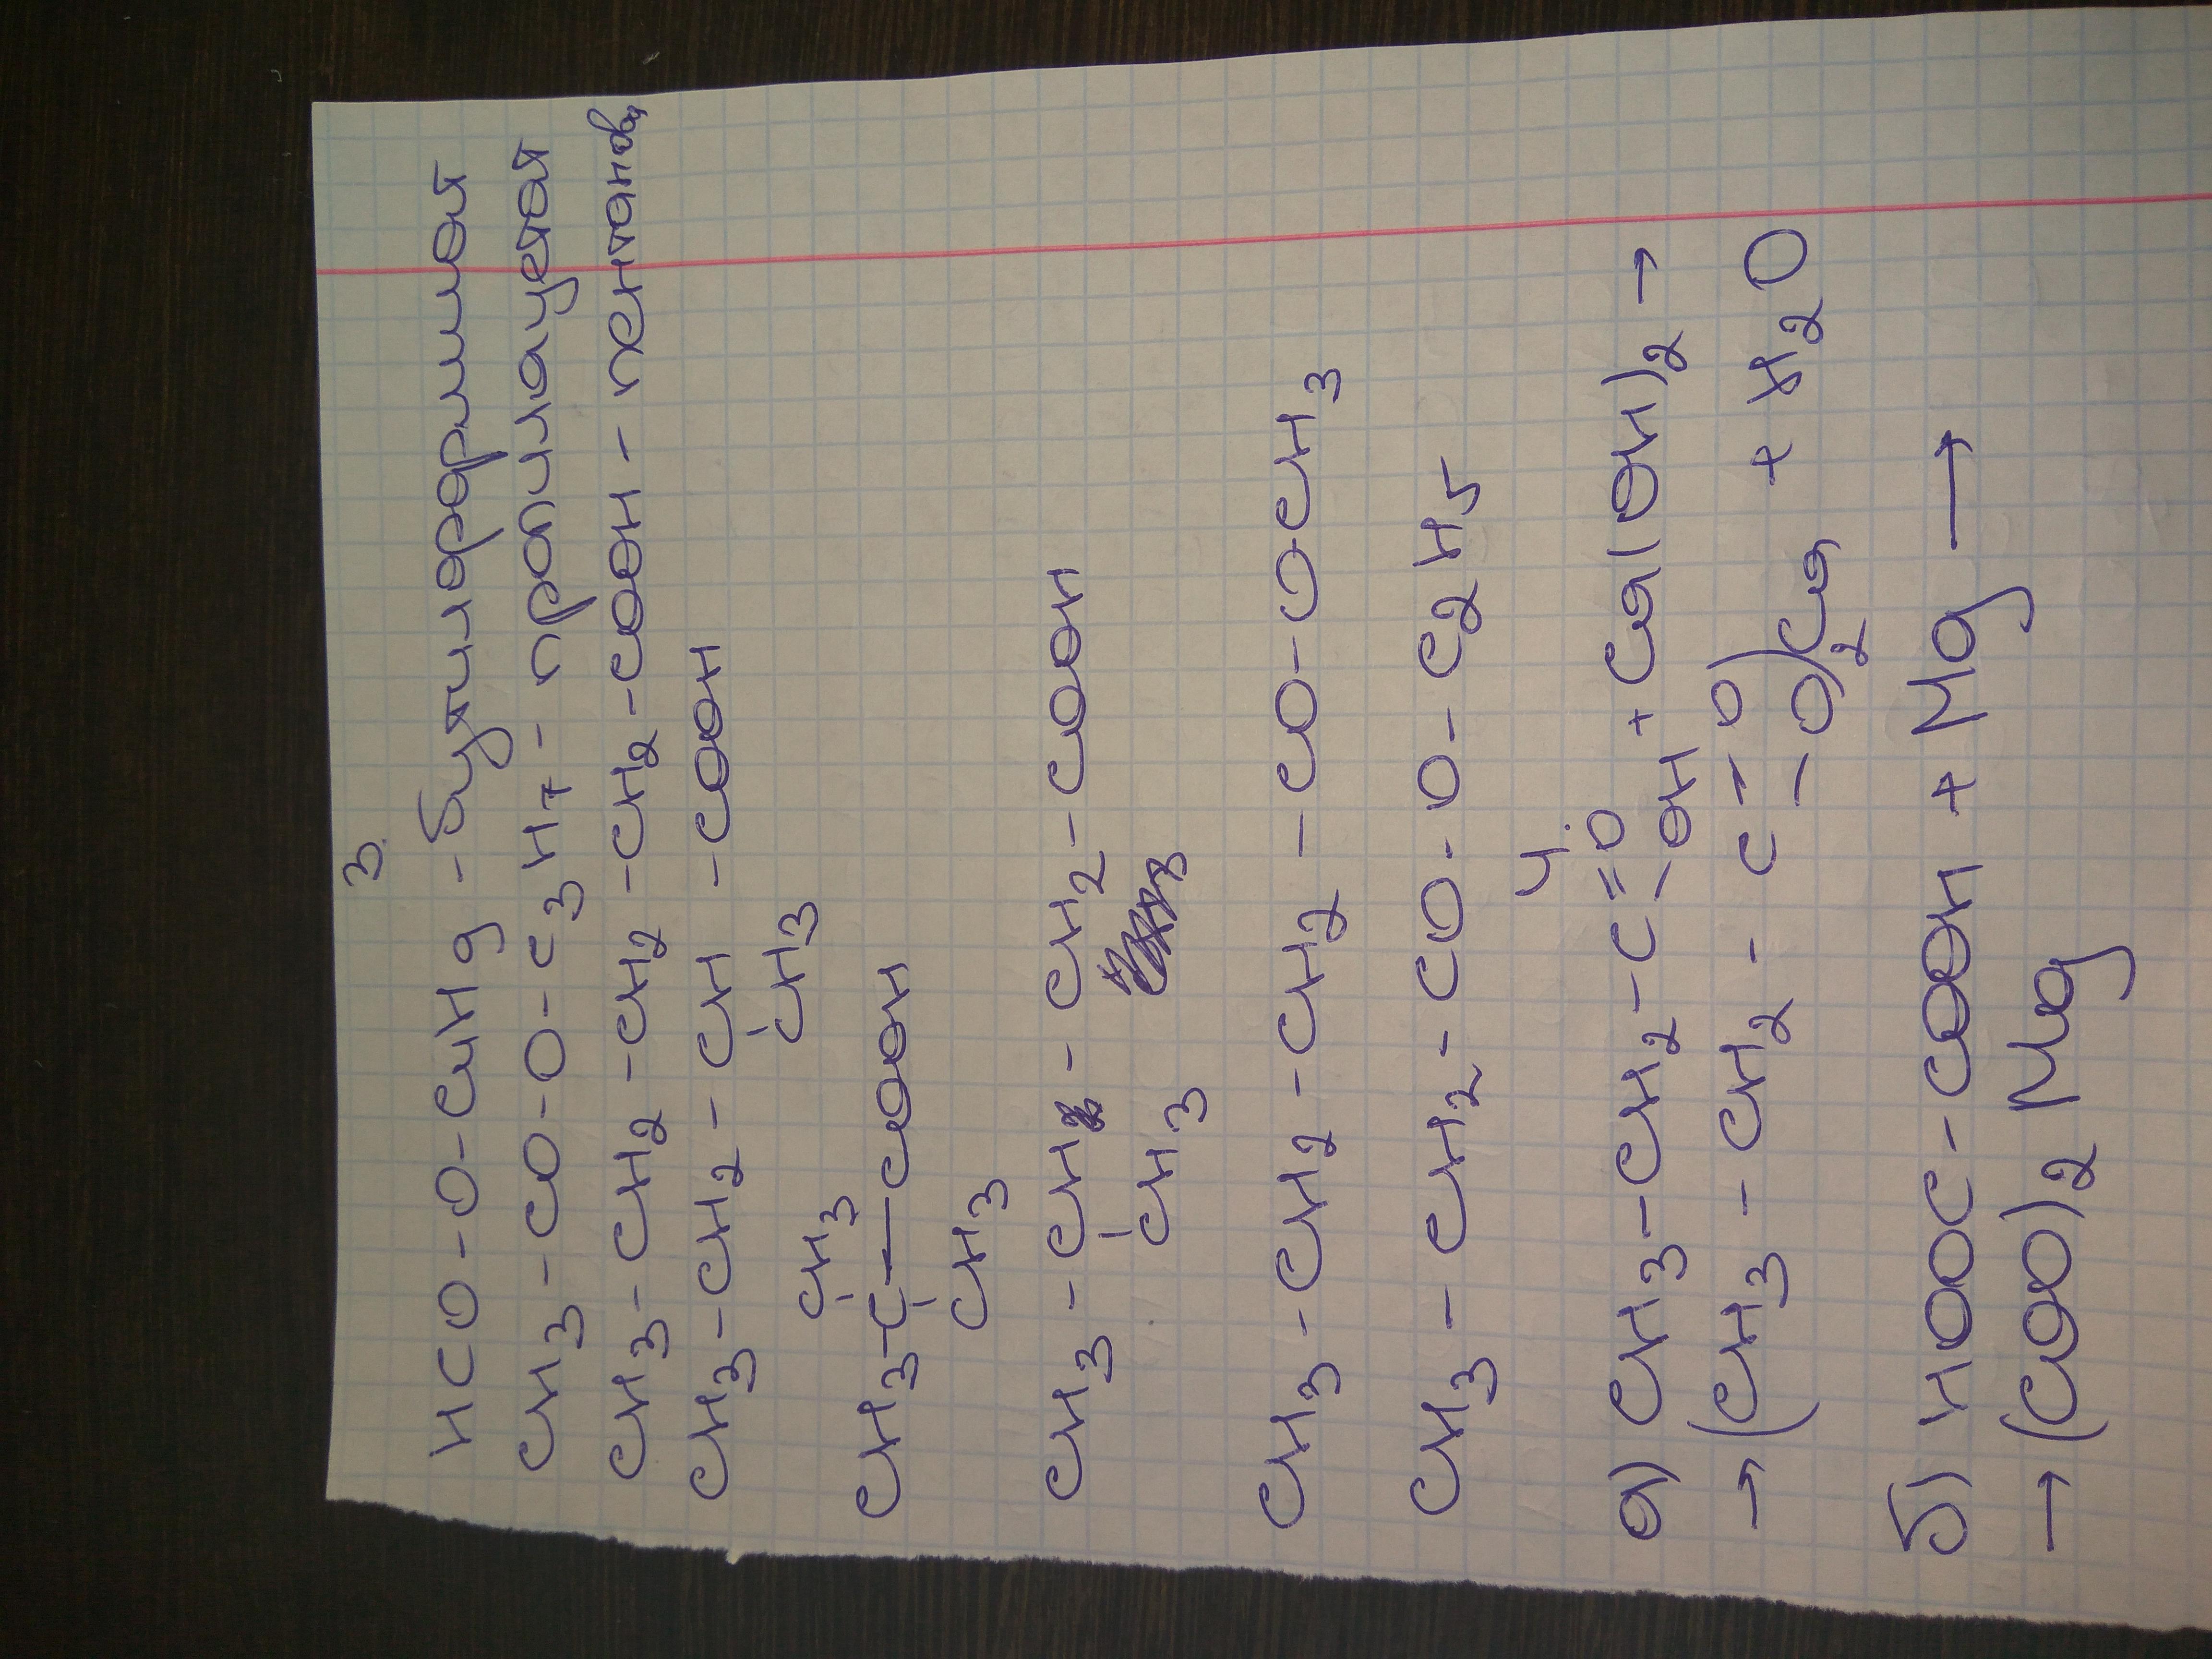 3.
HCO-O-C4H9 - бутилформиат
CH3-CO-O-C3H7 - пропилацетат
CH3-CH2-CH2-CH2-COOH - пентанов,
CH3-CH2-CH-COOH
CH3
CH3
CH3-C-COOH
CH3
CH3-CH-CH2-COOH
CH3
CH3-CH2-CH2-CO-OCH3
CH3-CH2-CO-O-C2H5
4.
а) CH3-CH2-C=O-OH + Ca(OH)2 →
→ (CH3-CH2-C=O-O)2Ca + H2O
б) HOOC-COOH + Mg →
→ (COO)2Mg